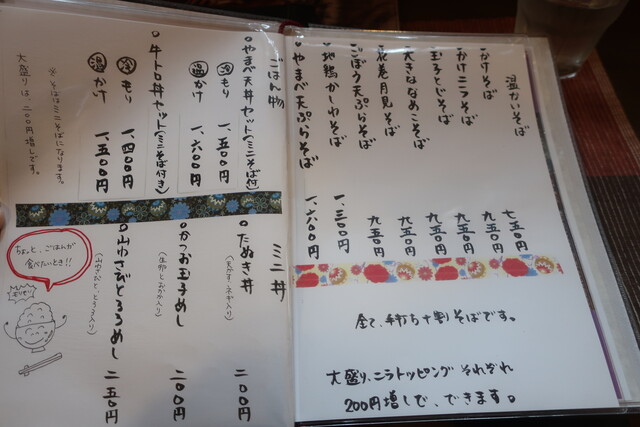 温かいそば
かけそば 七五〇円
かけニラそば 九五〇円
玉子とじそば 九五〇円
大きななめこそば 九五〇円
花巻月見そば 九五〇円
ごぼう天ぷらそば 九五〇円
地鶏かしわそば 一、三〇〇円
やまべ天ぷらそば 一、六〇〇円
全て、手打ち十割そばです。
大盛り、ニラトッピング それぞれ
200円増しで、できます。
ごはん物
やまべ天丼セット(ミニそば付)
冷 もり 一、五〇〇円
温 かけ 一、六〇〇円
牛トロ丼セット(ミニそば付き)
冷 もり 一、四〇〇円
温 かけ 一、五〇〇円
※そばはミニそばになります。
大盛りは、二〇〇円増しです。
ミニ丼
たぬき丼 二〇〇円
(天かす、ネギ入り)
かつお玉子めし 二〇〇円
(生卵とおかか入り)
山わさびとろろめし 二五〇円
(山わさびと、とろろ入り)
ちょっと、ごはんが
食べたいとき!!